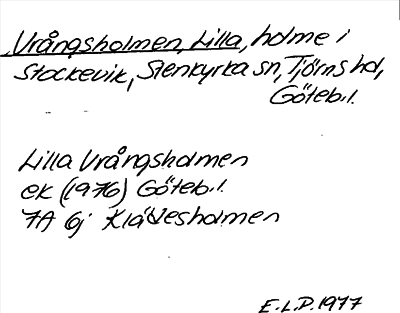 Vrångsholmen, Lilla, holme i
Stockevik, Stenkyrka sn, Tjörns hd,
Götebl.
Lilla Vrångsholmen
ek (1976) Götebl.
7A 6j Klädesholmen
E.L.P. 1977